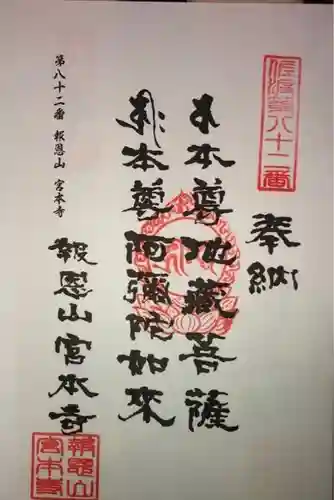 佐渡第八十二番
奉納
本尊地蔵菩薩
本尊阿彌陀如来
報恩山宮本寺
第八十二番 報恩山 宮本寺
報恩山
宮本寺